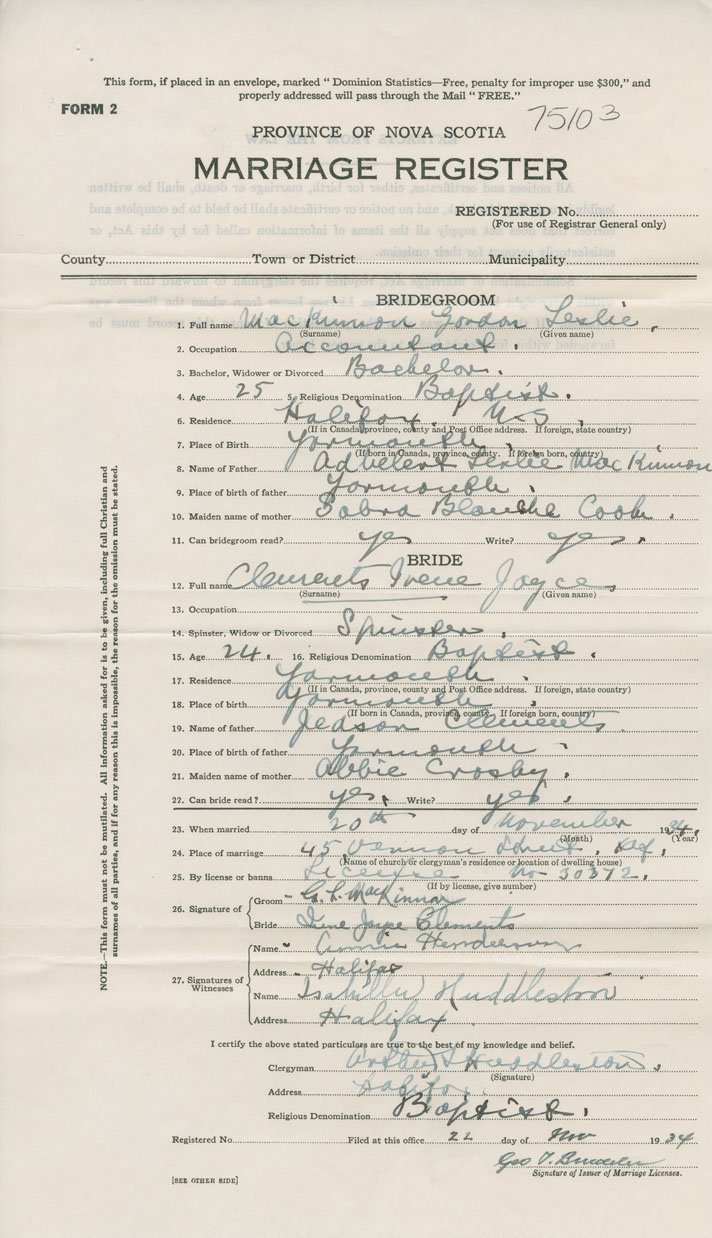 This form, if placed in an envelope, marked “ Dominion Statistics—Free, penalty for improper use $300,” and
properly addressed will pass through the Mail “ FREE.”
FORM 2
75103
PROVINCE OF NOVA SCOTIA
MARRIAGE REGISTER
REGISTERED No.
(For use of Registrar General only)
County Town or District Municipality
BRIDEGROOM
1. Full name MacKinnon Gordon Leslie
(Surname) (Given name)
2. Occupation Accountant.
3. Bachelor, Widower or Divorced Bachelor.
4. Age 25 5. Religious Denomination Baptist.
6. Residence Halifax. N-S.
(If in Canada, province, county and Post Office address. If foreign, state country)
7. Place of Birth Yarmouth.
(If born in Canada, province, county. If foreign born, country)
8. Name of Father Leslie MacKinnon
9. Place of birth of father Yarmouth.
10. Maiden name of mother Sabra Blanche Cook.
11. Can bridegroom read? yes Write? yes.
BRIDE
12. Full name Clements Irene Joyce
(Surname) (Given name)
13. Occupation
14. Spinster, Widow or Divorced Spinster.
15. Age 24. 16. Religious Denomination Baptist.
17. Residence Yarmouth
(If in Canada, province, county and Post Office address. If foreign, state country)
18. Place of Birth Yarmouth.
(If born in Canada, province, county. If foreign born, country)
19. Name of father Clements.
20. Place of birth of father Yarmouth.
21. Maiden name of mother Abbie Crosby.
22. Can bride read? yes. Write? yes.
23. When married 20th day of November 1934.
(Month) (Year)
24. Place of marriage 45 Vernon Street.
(Name of church or clergyman's residence or location of dwelling house)
25. By license or banns License No- 30372.
(If by license, give number)
26. Signature of
Groom G. L. MacKinnon
Bride Irene Joyce Clements
27. Signatures of Witnesses
Name Annie Henderson
Address Halifax
Name Huddleston
Address Halifax
I certify the above stated particulars are true to the best of my knowledge and belief.
Clergyman Huddleston.
(Signature)
Address Halifax
Religious Denomination Baptist.
Registered No. Filed at this office 22 day of Nov 1934
Geo T.
Signature of Issuer of Marriage Licenses.
[SEE OTHER SIDE]
NOTE.—This form must not be mutilated. All information asked for is to be given, including full Christian and
surnames of all parties, and if for any reason this is impossible, the reason for the omission must be stated.